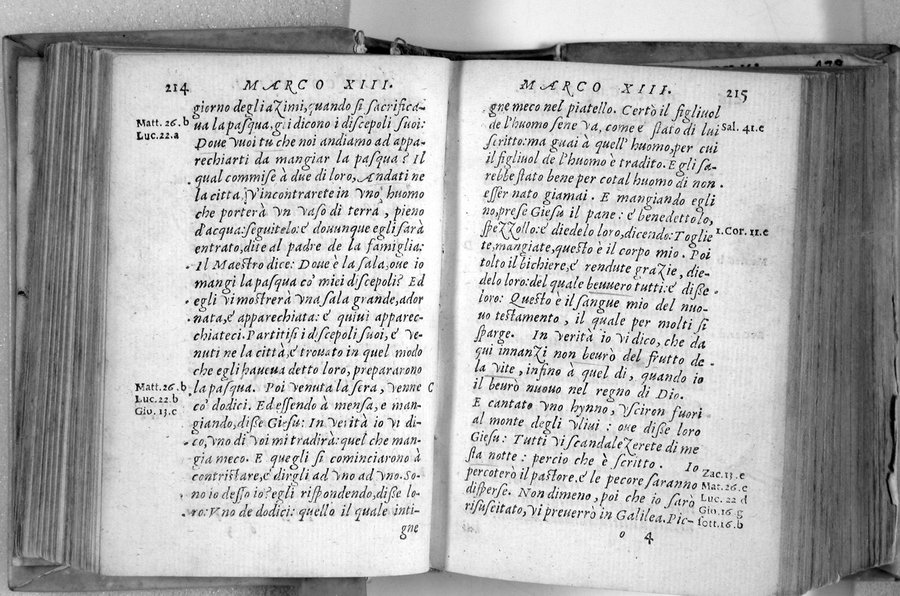 214 MARCO XIII.
giorno degli azimi, quando si sacrifica-
Matt. 26. b
ua la pasqua, gli dicono i discepoli suoi:
Luc. 22. a
Doue vuoi tu che noi andiamo ad appa-
recchiarti da mangiar la pasqua? Il
qual commise à due di loro, Andati ne
la citta, v'incontrerete in vno huomo
che porterà vn vaso di terra, pieno
d'acqua: seguitelo: e douunque egli sarà
entrato, dite al padre de la famiglia:
Il Maestro dice: Doue è la sala, oue io
mangi la pasqua co' miei discepoli? Ed
egli vi mostrerà vna sala grande, ador
nata, e apparecchiata: e quiui apparec-
chiateci. Partitisi i discepoli suoi, e ve-
nuti ne la città, e trouato in quel modo
che egli haueua detto loro, prepararono
Matt. 26. b
la pasqua. Poi venuta la sera, venne C
Luc. 22. b
co' dodici. Ed essendo à mensa, e man-
Gio. 13. c
giando, disse Giesu: In verità io vi di-
co, vno di voi mi tradirà: quel che man-
gia meco. E quegli si cominciarono à
contristare, e dirgli ad vno ad vno. So-
no io desso io? egli rispondendo, disse lo-
ro: Vno de dodici: quello il quale inti-
gne
MARCO XIII. 215
gne meco nel piatello. Certo il figliuol
de l'huomo sene va, come è stato di lui
Sal. 41. c
scritto: ma guai à quell' huomo, per cui
il figliuol de l'huomo è tradito. Egli sa-
rebbe stato bene per cotal huomo di non
esser nato giamai. E mangiando egli
no, prese Giesù il pane: e benedettolo,
spezzollo: e diedelo loro, dicendo: Toglie
1. Cor. 11. e
te, mangiate, questo è il corpo mio. Poi
tolto il bichiere, e rendute grazie, die-
delo loro: del quale beuuero tutti: e disse
loro: Questo è il sangue mio del nuo-
uo testamento, il quale per molti si
sparge. In verità io vi dico, che da
qui innanzi non beurò del frutto de
la vite, infino a quel di, quando io
il beurò nuouo nel regno di Dio.
E cantato vno hynno, vsciron fuori
al monte degli vliui: oue disse loro
Giesu: Tutti vi scandalezerete di me
sta notte: percio che è scritto. Io
Zac. 13. e
percoterò il pastore, e le pecore saranno
Mat. 26. c
disperse. Non dimeno, poi che io sarò
Luc. 22 d
Gio. 16. g
risuscitato, vi preuerrò in Galilea. Pic-
sott. 16. b
o 4